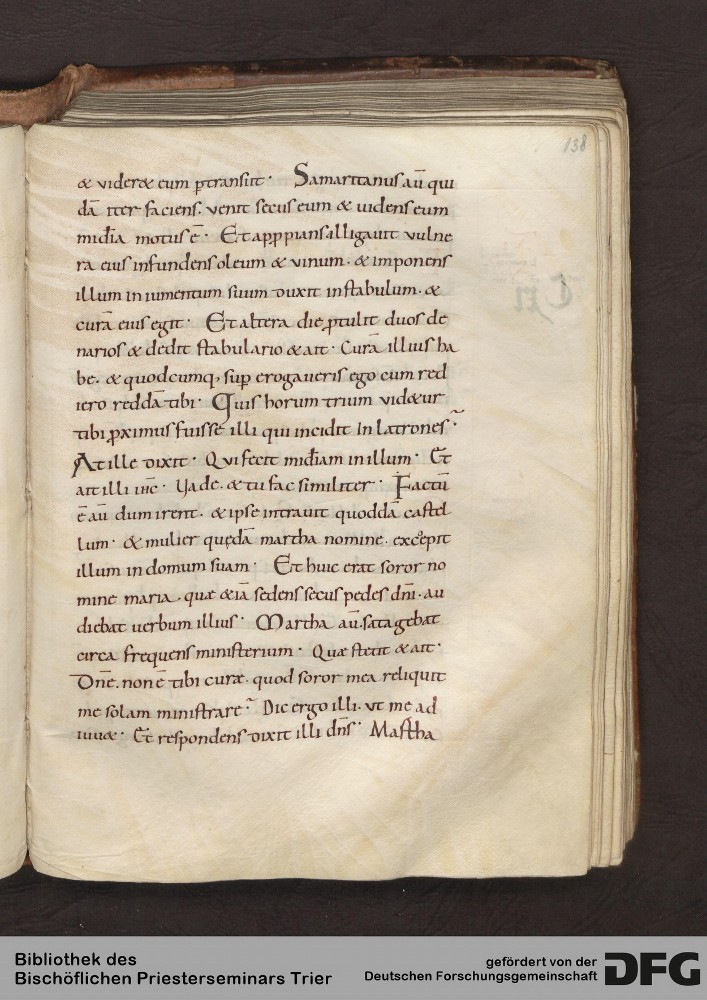 138
& vider& eum ꝑtransiit· Samaritanus aū qui
dā iter faciens. venit secus eum & videns eum
mid̄ia motus ē· Et apꝓpians alligavit vulne
ra eius infundens oleum & vinum· & imponens
illum in iumentum suum duxit in stabulum· &
curā eius egit· Et altera die ꝓtulit duos de
narios & dedit stabulario & ait· Curā illius ha
be· & quodcumq; suꝑ erogaveris ego cum red
iero reddā tibi· Quis horum trium vid&ur
tibi ꝓximus fuisse illi qui incidit in latrones·
At ille dixit· Qui fecit mid̄iam in illum· Et
ait illi ihc̄· Vade· & tu fac similiter· Factū
ē aū dum irent· & ipse intravit quoddā castel
lum· & mulier quędā martha nomine· excepit
illum in domum suam· Et huic erat soror no
mine maria· quæ &iā sedens secus pedes dn̄i· au
diebat verbum illius· Martha aū· satagebat
circa frequens ministerium· Quæ stetit & ait·
Dn̄e· non ē tibi curæ· quod soror mea reliquit
me solam ministrare· Dic ergo illi· ut me ad
iuv&· Et respondens dixit illi dn̄s· Martha
Bibliothek des
Bischöflichen Priesterseminars Trier
gefördert von der
Deutschen Forschungsgemeinschaft
DFG